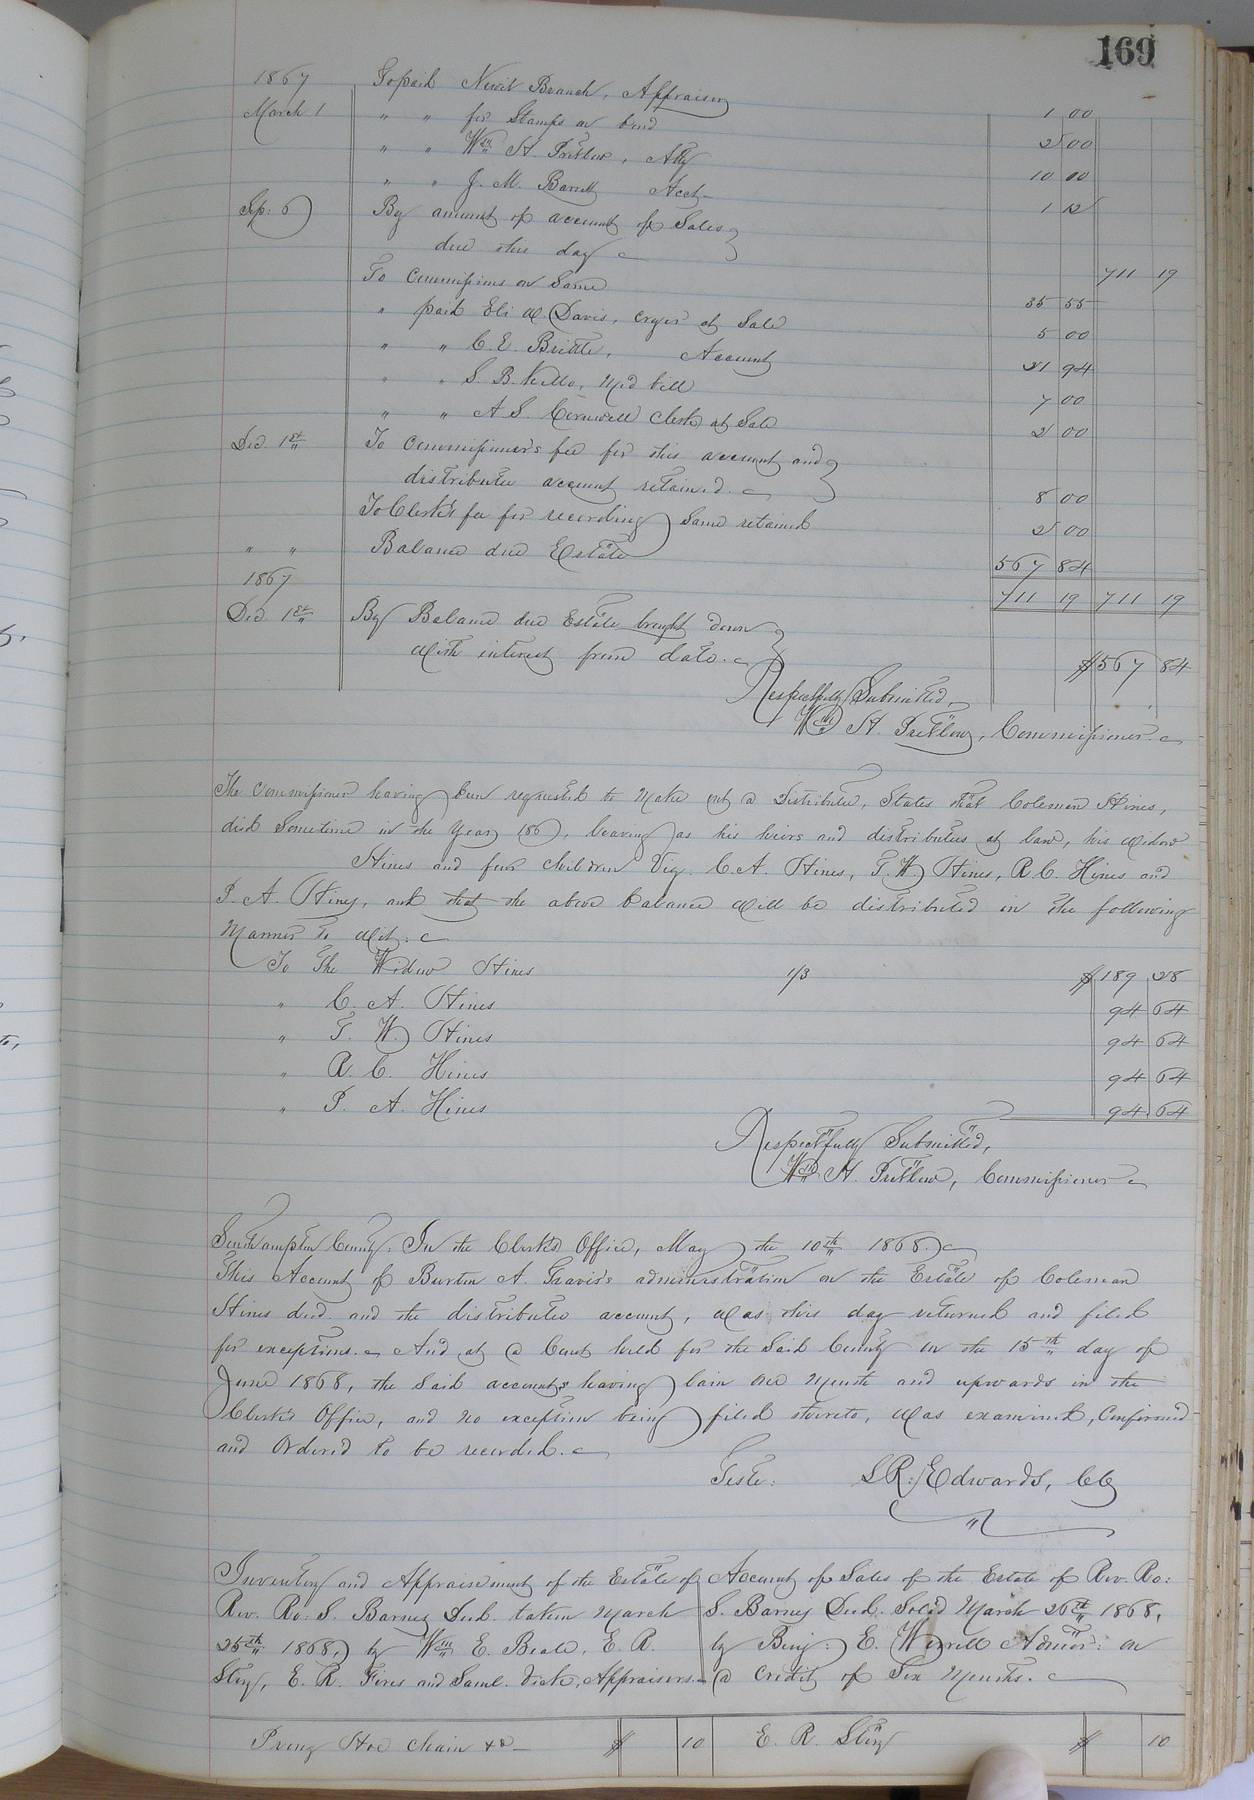 169
1867 To paid Newit Branch, Appraiser 1 00
March 1 " " for Stamps on bond 2 00
" " Wm H. Pretlow, Atty 10 00
" " J. M. Barrett Acct 1 12
Sep: 6 By amount of account of Sales
due this day 711 19
To Commissions on Same 35 55
" paid Eli W Davis, cryer at Sale 5 00
" " C. E. Brittle, Account 21 94
" " S. B. Kello, Med bill 7 00
" " A S. Cornwell Clerk at Sale 2 00
Dec. 1st To Commissioner's fee for this account and
distributive account retained. 8 00
To Clerk's fee for recording Same retained 2 00
" " Balance due Estate 567 84
1867 711 19 711 19
Dec. 1st By Balance due Estate brought down
with interest from date. $567 84
Respectfully Submitted,
Wm H. Pretlow, Commissioner.
The Commissioner having been requested to make out a Distributive, States that Coleman Hines,
died Sometime in the Year 186, leaving as his heirs and distributees at law, his widow
Hines and four children Viz. C. A. Hines, T. W Hines, R C. Hines and
P. A. Hines, and that the above balance will be distributed in the following
Manner to wit:
To The Widow Hines 1/3 $189 28
" C. A. Hines 94 64
" T. W. Hines 94 64
" R. C. Hines 94 64
" P. A. Hines 94 64
Respectfully Submitted,
Wm H. Pretlow, Commissioner
Southampton County: In the Clerk's Office, May the 10th 1868.
This Account of Burton A. Gravis's administration on the Estate of Coleman
Hines decd. and the distributive account, was this day returned and filed
for exceptions. And at a Court held for the Said County on the 15th day of
June 1868, the Said accounts having lain one Month and upwards in the
Clerk's Office, and no exception being filed thereto, was examined, Confirmed
and Ordered to be recorded.
Teste: L R: Edwards, CC
Inventory and Appraisement of the Estate of
Rev. Ro. S. Barnes Decd. taken March
25th 1868, by Wm E. Beale, E. R.
Story, E. R. Fires and Saml. Dicke, Appraisers.
Account of Sales of the Estate of Rev. Ro:
S. Barnes Decd. Sold March 26th 1868,
by Benj: E. Worrell Admor: on
a Credit of Six Months.
Prong Hoe chain &c $ 10 E. R. Story $ 10